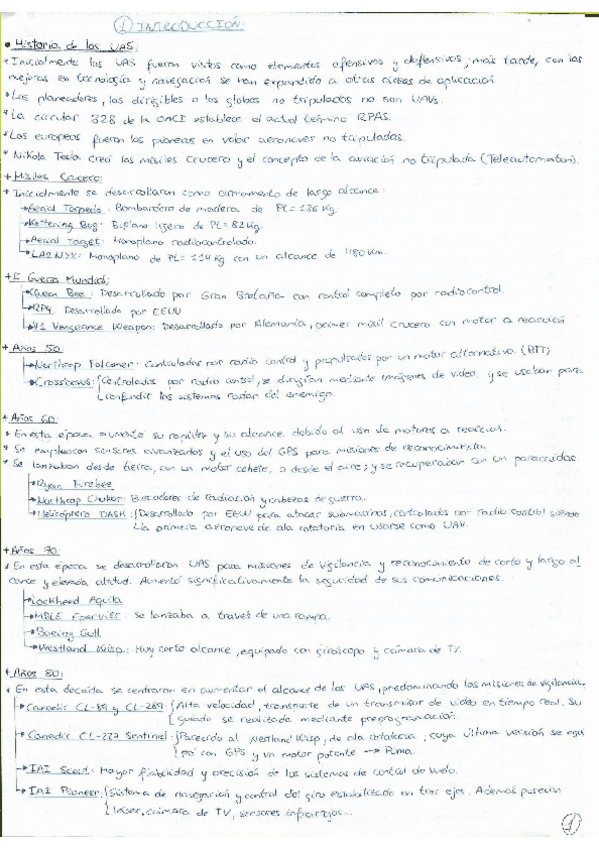 ① INTRODUCCIÓN:
• Historia de los UAS:
* Inicialmente los UAS fueron vistos como elementos ofensivos y defensivos; más tarde, con las
mejoras en tecnología y navegación se han expandido a otras áreas de aplicación.
* Los planeadores, los dirigibles o los globos no tripulados no son UAVs.
* La circular 328 de la OACI establece el actual término RPAS.
* Los europeos fueron los pioneros en volar aeronaves no tripuladas.
* Nikola Tesla creó los misiles crucero y el concepto de la aviación no tripulada (Teleautomaton).
+ Misiles Crucero:
* Inicialmente se desarrollaron como armamento de largo alcance:
→ Aerial Torpedo: Bombardero de madera de PL = 136 Kg.
→ Kettering Bug: Biplano ligero de PL = 82 Kg.
→ Aerial Target: Monoplano radiocontrolado.
→ LARYNX: Monoplano de PL = 114 Kg con un alcance de 480 Km.
+ II Guerra Mundial:
→ Queen Bee: Desarrollado por Gran Bretaña con control completo por radiocontrol.
→ RP4: Desarrollado por EEUU
→ V1 Vengeance Weapon: Desarrollado por Alemania, primer misil crucero con motor a reacción
+ Años 50:
→ Northrop Falconer: Controlados por radio control y propulsados por un motor alternativo. (RTT)
→ Crossbows: { Controlados por radio control, se dirigían mediante imágenes de video, y se usaban para
confundir los sistemas radar del enemigo.
+ Años 60:
* En esta época aumentó su rapidez y su alcance debido al uso de motores a reacción.
* Se emplearon sensores avanzados y el uso del GPS para misiones de reconocimiento.
* Se lanzaban desde tierra, con un motor cohete, o desde el aire; y se recuperaban con un paracaídas.
→ Ryan Firebee
→ Northrop Chukar: Buscadores de radiación y cabezas de guerra.
→ Helicóptero DASH: { Desarrollado por EEUU para atacar submarinos, controlados por radio control siendo
la primera aeronave de ala rotatoria en usarse como UAV.
+ Años 70:
* En esta época se desarrollaron UAS para misiones de vigilancia y reconocimiento de corto y largo al
cance y elevada altitud. Aumentó significativamente la seguridad de sus comunicaciones.
→ Lockheed Aquila
→ MBLE Epervier: Se lanzaba a través de una rampa.
→ Boeing Gull
→ Westland Wisp: Muy corto alcance, equipado con giroscopo y cámara de TV.
+ Años 80:
* En esta década se centraron en aumentar el alcance de los UAS, predominando las misiones de vigilancia.
→ Canadair CL-89 y CL-289: { Alta velocidad, transporte de un transmisor de video en tiempo real. Su
guiado se realizaba mediante preprogramación.
→ Canadair CL-227 Sentinel: { Parecido al Westland Wisp, de ala rotatoria, cuya última versión se equi
pó con GPS y un motor potente → Puma.
→ IAI Scout: Mayor fiabilidad y precisión de los sistemas de control de vuelo.
→ IAI Pioneer: { Sistema de navegación y control del giro estabilizado en tres ejes. Además poseían
láser, cámara de TV, sensores infrarrojos...
①